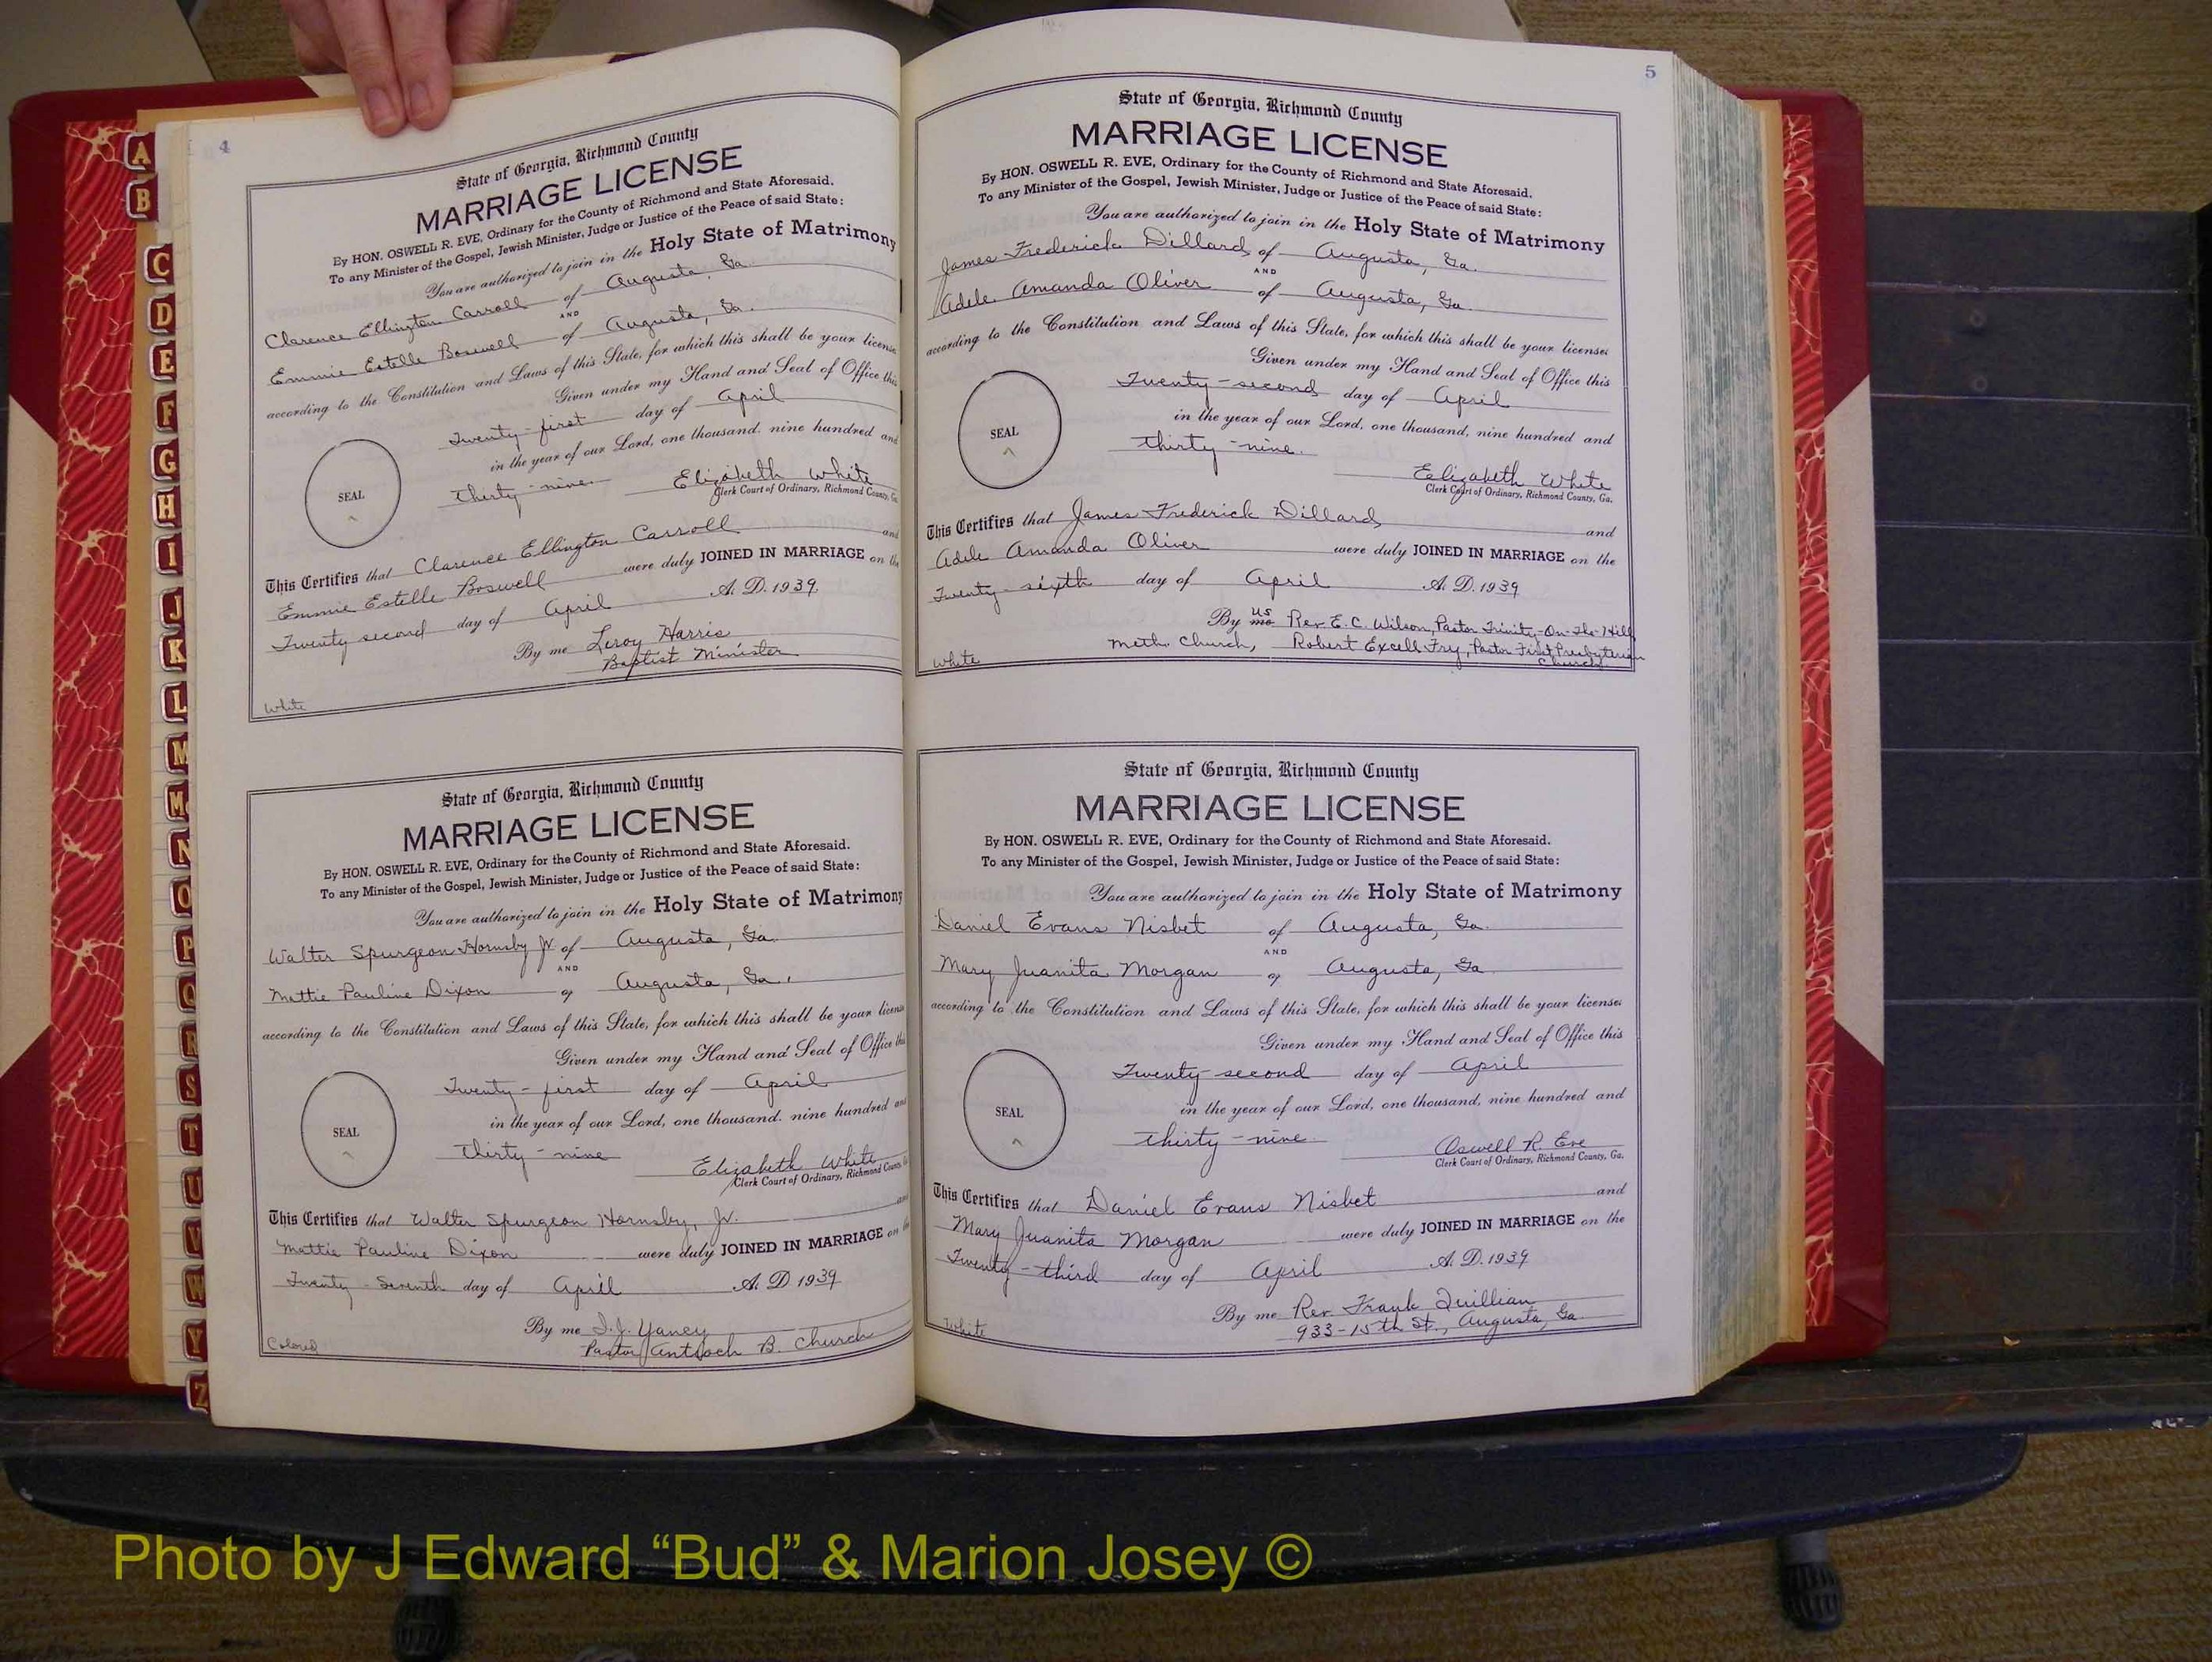 A
B
C
D
E
F
G
H
I
J
K
L
M
Mc
N
O
P
Q
R
S
T
U
V
W
Y
Z
4
State of Georgia, Richmond County
MARRIAGE LICENSE
By HON. OSWELL R. EVE, Ordinary for the County of Richmond and State Aforesaid.
To any Minister of the Gospel, Jewish Minister, Judge or Justice of the Peace of said State:
You are authorized to join in the Holy State of Matrimony
Clarence Ellington Carroll of Augusta, Ga.
AND
Emmie Estelle Boswell of Augusta, Ga.
according to the Constitution and Laws of this State, for which this shall be your license
Given under my Hand and Seal of Office this
Twenty-first day of April
in the year of our Lord, one thousand, nine hundred and
SEAL
Thirty-nine. Elizabeth White
Clerk Court of Ordinary, Richmond County, Ga.
This Certifies that Clarence Ellington Carroll and
Emmie Estelle Boswell were duly JOINED IN MARRIAGE on the
Twenty second day of April A. D. 1939.
By me Leroy Harris
Baptist Minister
White
State of Georgia, Richmond County
MARRIAGE LICENSE
By HON. OSWELL R. EVE, Ordinary for the County of Richmond and State Aforesaid.
To any Minister of the Gospel, Jewish Minister, Judge or Justice of the Peace of said State:
You are authorized to join in the Holy State of Matrimony
Walter Spurgeon Hornsby Jr. of Augusta, Ga.
AND
Mattie Pauline Dixon of Augusta, Ga.
according to the Constitution and Laws of this State, for which this shall be your license
Given under my Hand and Seal of Office this
Twenty-first day of April
in the year of our Lord, one thousand, nine hundred and
SEAL
Thirty-nine Elizabeth White
Clerk Court of Ordinary, Richmond County
This Certifies that Walter Spurgeon Hornsby, Jr. and
Mattie Pauline Dixon were duly JOINED IN MARRIAGE on
Twenty-Seventh day of April A. D. 1939
By me I. J. Yancy
Pastor Antioch B. Church
Colored
5
State of Georgia, Richmond County
MARRIAGE LICENSE
By HON. OSWELL R. EVE, Ordinary for the County of Richmond and State Aforesaid.
To any Minister of the Gospel, Jewish Minister, Judge or Justice of the Peace of said State:
You are authorized to join in the Holy State of Matrimony
James Frederick Dillard of Augusta, Ga.
AND
Adele Amanda Oliver of Augusta, Ga.
according to the Constitution and Laws of this State, for which this shall be your license.
Given under my Hand and Seal of Office this
Twenty-second day of April
in the year of our Lord, one thousand, nine hundred and
SEAL
Thirty-nine.
Elizabeth White
Clerk Court of Ordinary, Richmond County, Ga.
This Certifies that James Frederick Dillard and
Adele Amanda Oliver were duly JOINED IN MARRIAGE on the
Twenty-sixth day of April A. D. 1939
By me us Rev E. C. Wilson, Pastor Trinity-On-The-Hill
Meth. Church, Robert Excell Fry, Pastor First Presbyterian
Church
White
State of Georgia, Richmond County
MARRIAGE LICENSE
By HON. OSWELL R. EVE, Ordinary for the County of Richmond and State Aforesaid.
To any Minister of the Gospel, Jewish Minister, Judge or Justice of the Peace of said State:
You are authorized to join in the Holy State of Matrimony
Daniel Evans Nisbet of Augusta, Ga.
AND
Mary Juanita Morgan of Augusta, Ga.
according to the Constitution and Laws of this State, for which this shall be your license.
Given under my Hand and Seal of Office this
Twenty-second day of April
in the year of our Lord, one thousand, nine hundred and
SEAL
Thirty-nine.
Oswell R. Eve
Clerk Court of Ordinary, Richmond County, Ga.
This Certifies that Daniel Evans Nisbet and
Mary Juanita Morgan were duly JOINED IN MARRIAGE on the
Twenty-third day of April A. D. 1939
By me Rev. Frank Quillian
933-15th St., Augusta, Ga.
White
Photo by J Edward “Bud” & Marion Josey ©